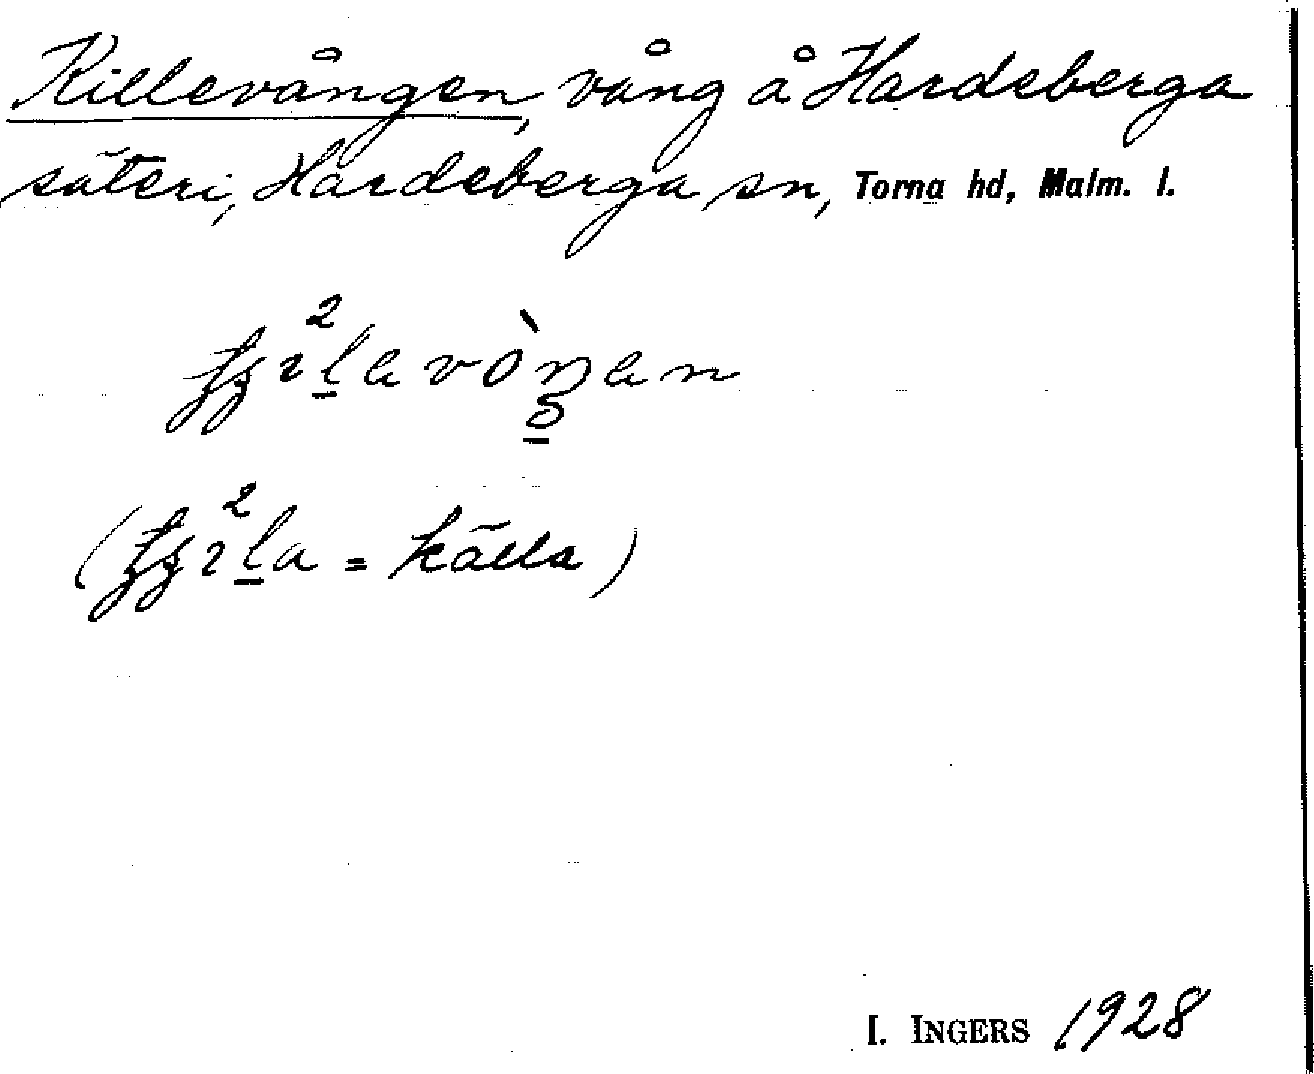 Killevången, vång å Hardeberga
säteri, Hardeberga sn, Torna hd, Malm. l.
(= källa)
I. INGERS 1928